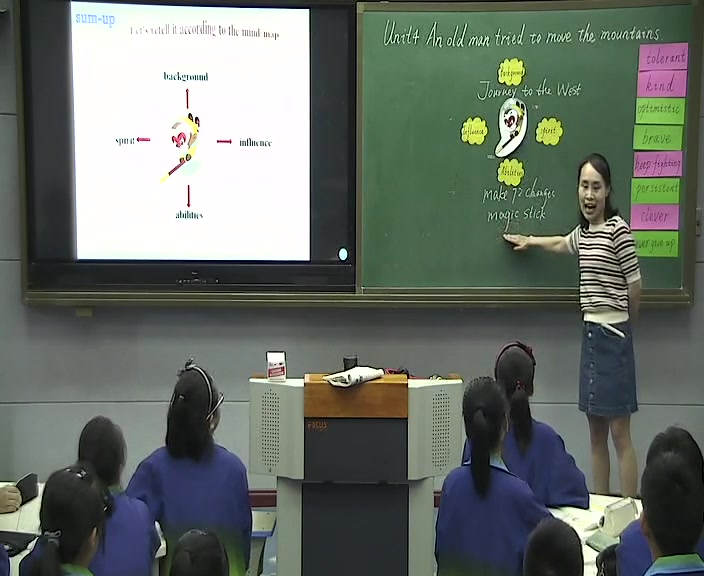 sum-up
Let's retell it according to the mind map
background
spirit
influence
abilities
Unit4 An old man tried to move the mountains.
background
Journey to the West
influence
spirit
Abilities
make 72 changes
magic stick
tolerant
kind
optimistic
brave
keep fighting
persistent
clever
never give up
FOCUS